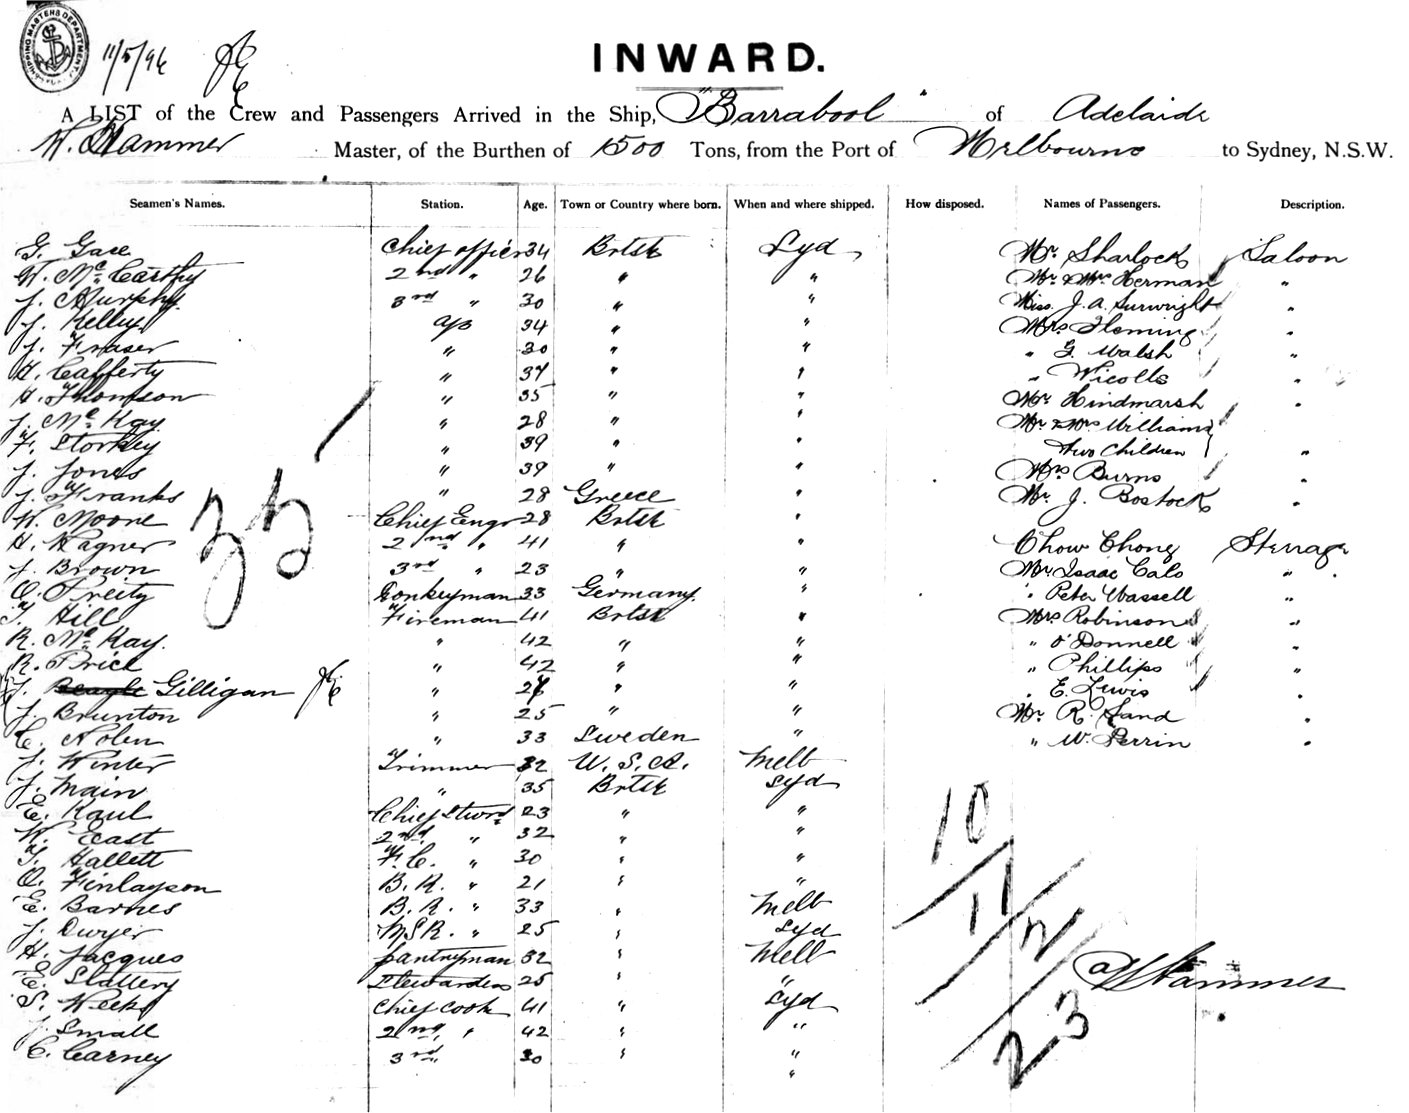 SHIPPING MASTERS DEPARTMENT
11/5/96
INWARD.
A LIST of the Crew and Passengers Arrived in the Ship, "Barrabool" of Adelaide
W. Hammer Master, of the Burthen of 1500 Tons, from the Port of Melbourne to Sydney, N.S.W.
Seamen's Names. Station. Age. Town or Country where born. When and where shipped. How disposed. Names of Passengers. Description.
G. Gace Chief officer 34 Brtsh Syd Mr. Sharlock Saloon
W. McCarthy 2nd " 26 " " Mr & Mrs Herman "
J. Murphy 3rd " 30 " " Miss J. A. "
J. Kelley a/s 34 " " Mrs Fleming "
J. Fraser " 30 " " " G. Walsh "
H. Cafferty " 37 " " " Nicolls "
H. Thomson " 35 " " Mr Hindmarsh "
J. McKay " 28 " " Mr & Mrs Williams
F. Storkey " 39 " " Two Children "
J. Jones " 39 " " Mrs Burns "
J. Franks " 28 Greece " Mr. J. Bostock "
W. Moore Chief Engr 28 Brtsh "
H. Wagner 2nd " 41 " " Chow Chong Sterrage
J. Brown 3rd " 23 " " Mr Isaac Calo "
O. Preity Donkeyman 33 Germany " " Peter Wassell "
T. Hill Fireman 41 Brtsh " Mrs Robinson "
R. McKay. " 42 " " " O'Donnell "
R. Price " 42 " " " Phillips "
J. Gilligan " " " " E. Lewis "
J. Brunton " 25 " " Mr. R. Sand "
C. Nolen " 33 Sweden " " W. Perrin "
J. Winter Trimmer 32 U.S.A. Melb
J. Main " 35 Brtsh Syd
E. Kaul Chief Stwrd 23 " "
W. East 2nd " 32 " "
T. Hallett F.C. " 30 " "
O. Finlayson B.R. " 21 " "
E. Barnes B.R. " 33 " Melb
J. Dwyer M.S.R. " 25 " Syd
H. Jacques pantryman 32 " Melb
E. Slattery Stewardess 25 " "
S. Weeks Chief cook 41 " Syd
J. Small 2nd " 42 " "
C. Carney 3rd 30 " "
35
10
11
2
23
W Hammer